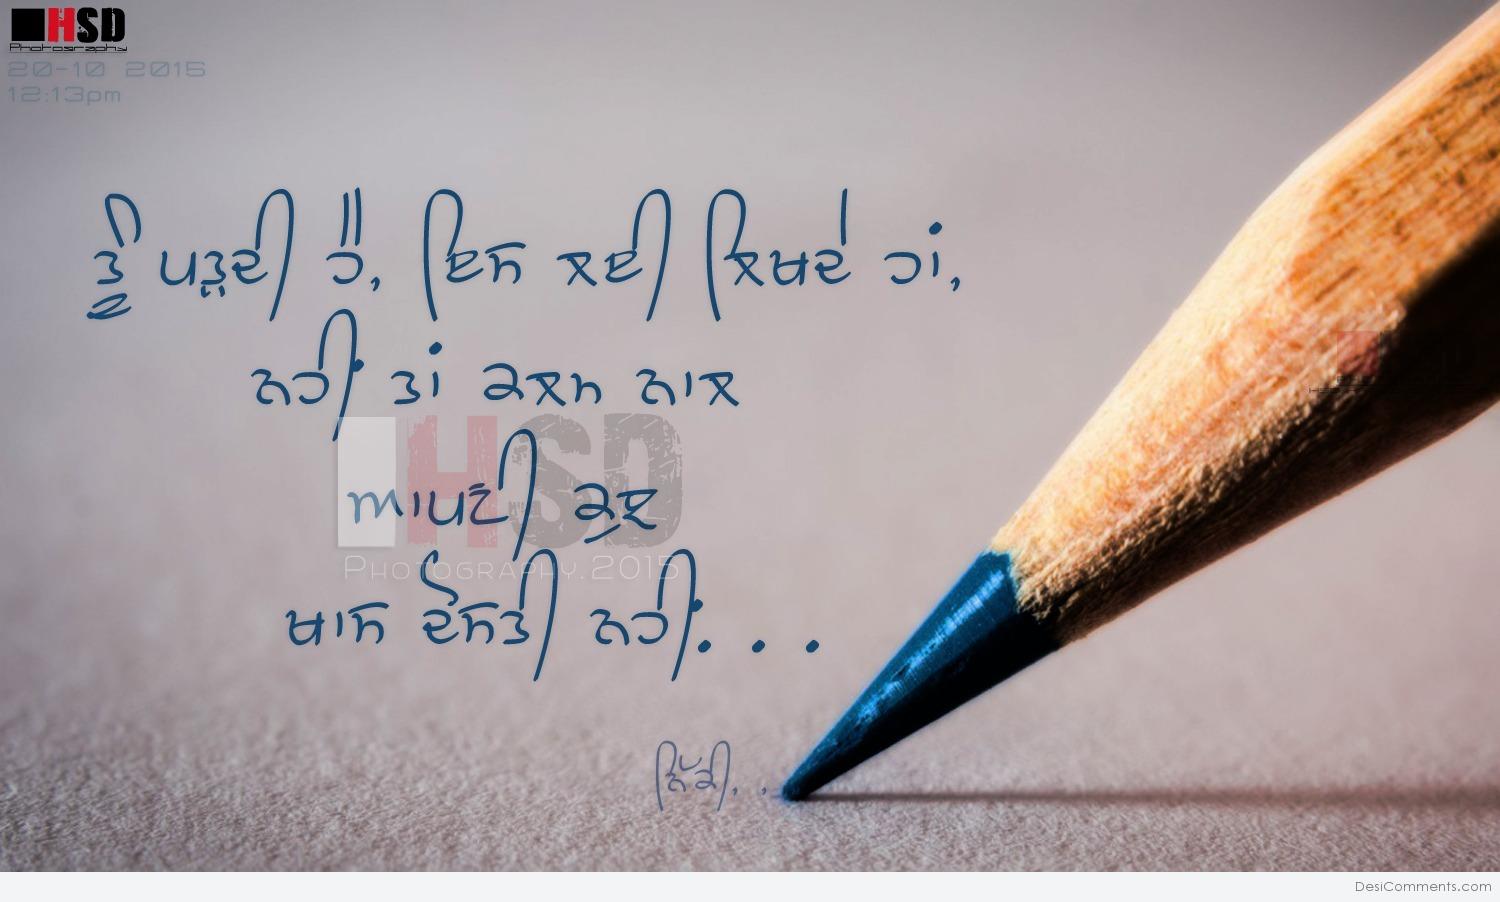 HSD
Photography
20-10 2015
12:13pm
ਤੂੰ ਪੜ੍ਹਦੀ ਹੈਂ, ਇਸ ਲਈ ਲਿਖਦੇ ਹਾਂ,
ਨਹੀਂ ਤਾਂ ਕਲਮ ਨਾਲ
HSD
ਆਪਣੀ ਕੁਝ
PHOTOGRAPHY.2015
ਖਾਸ ਦੋਸਤੀ ਨਹੀਂ. . .
ਨਿੱਕੀ. . .
DesiComments.com